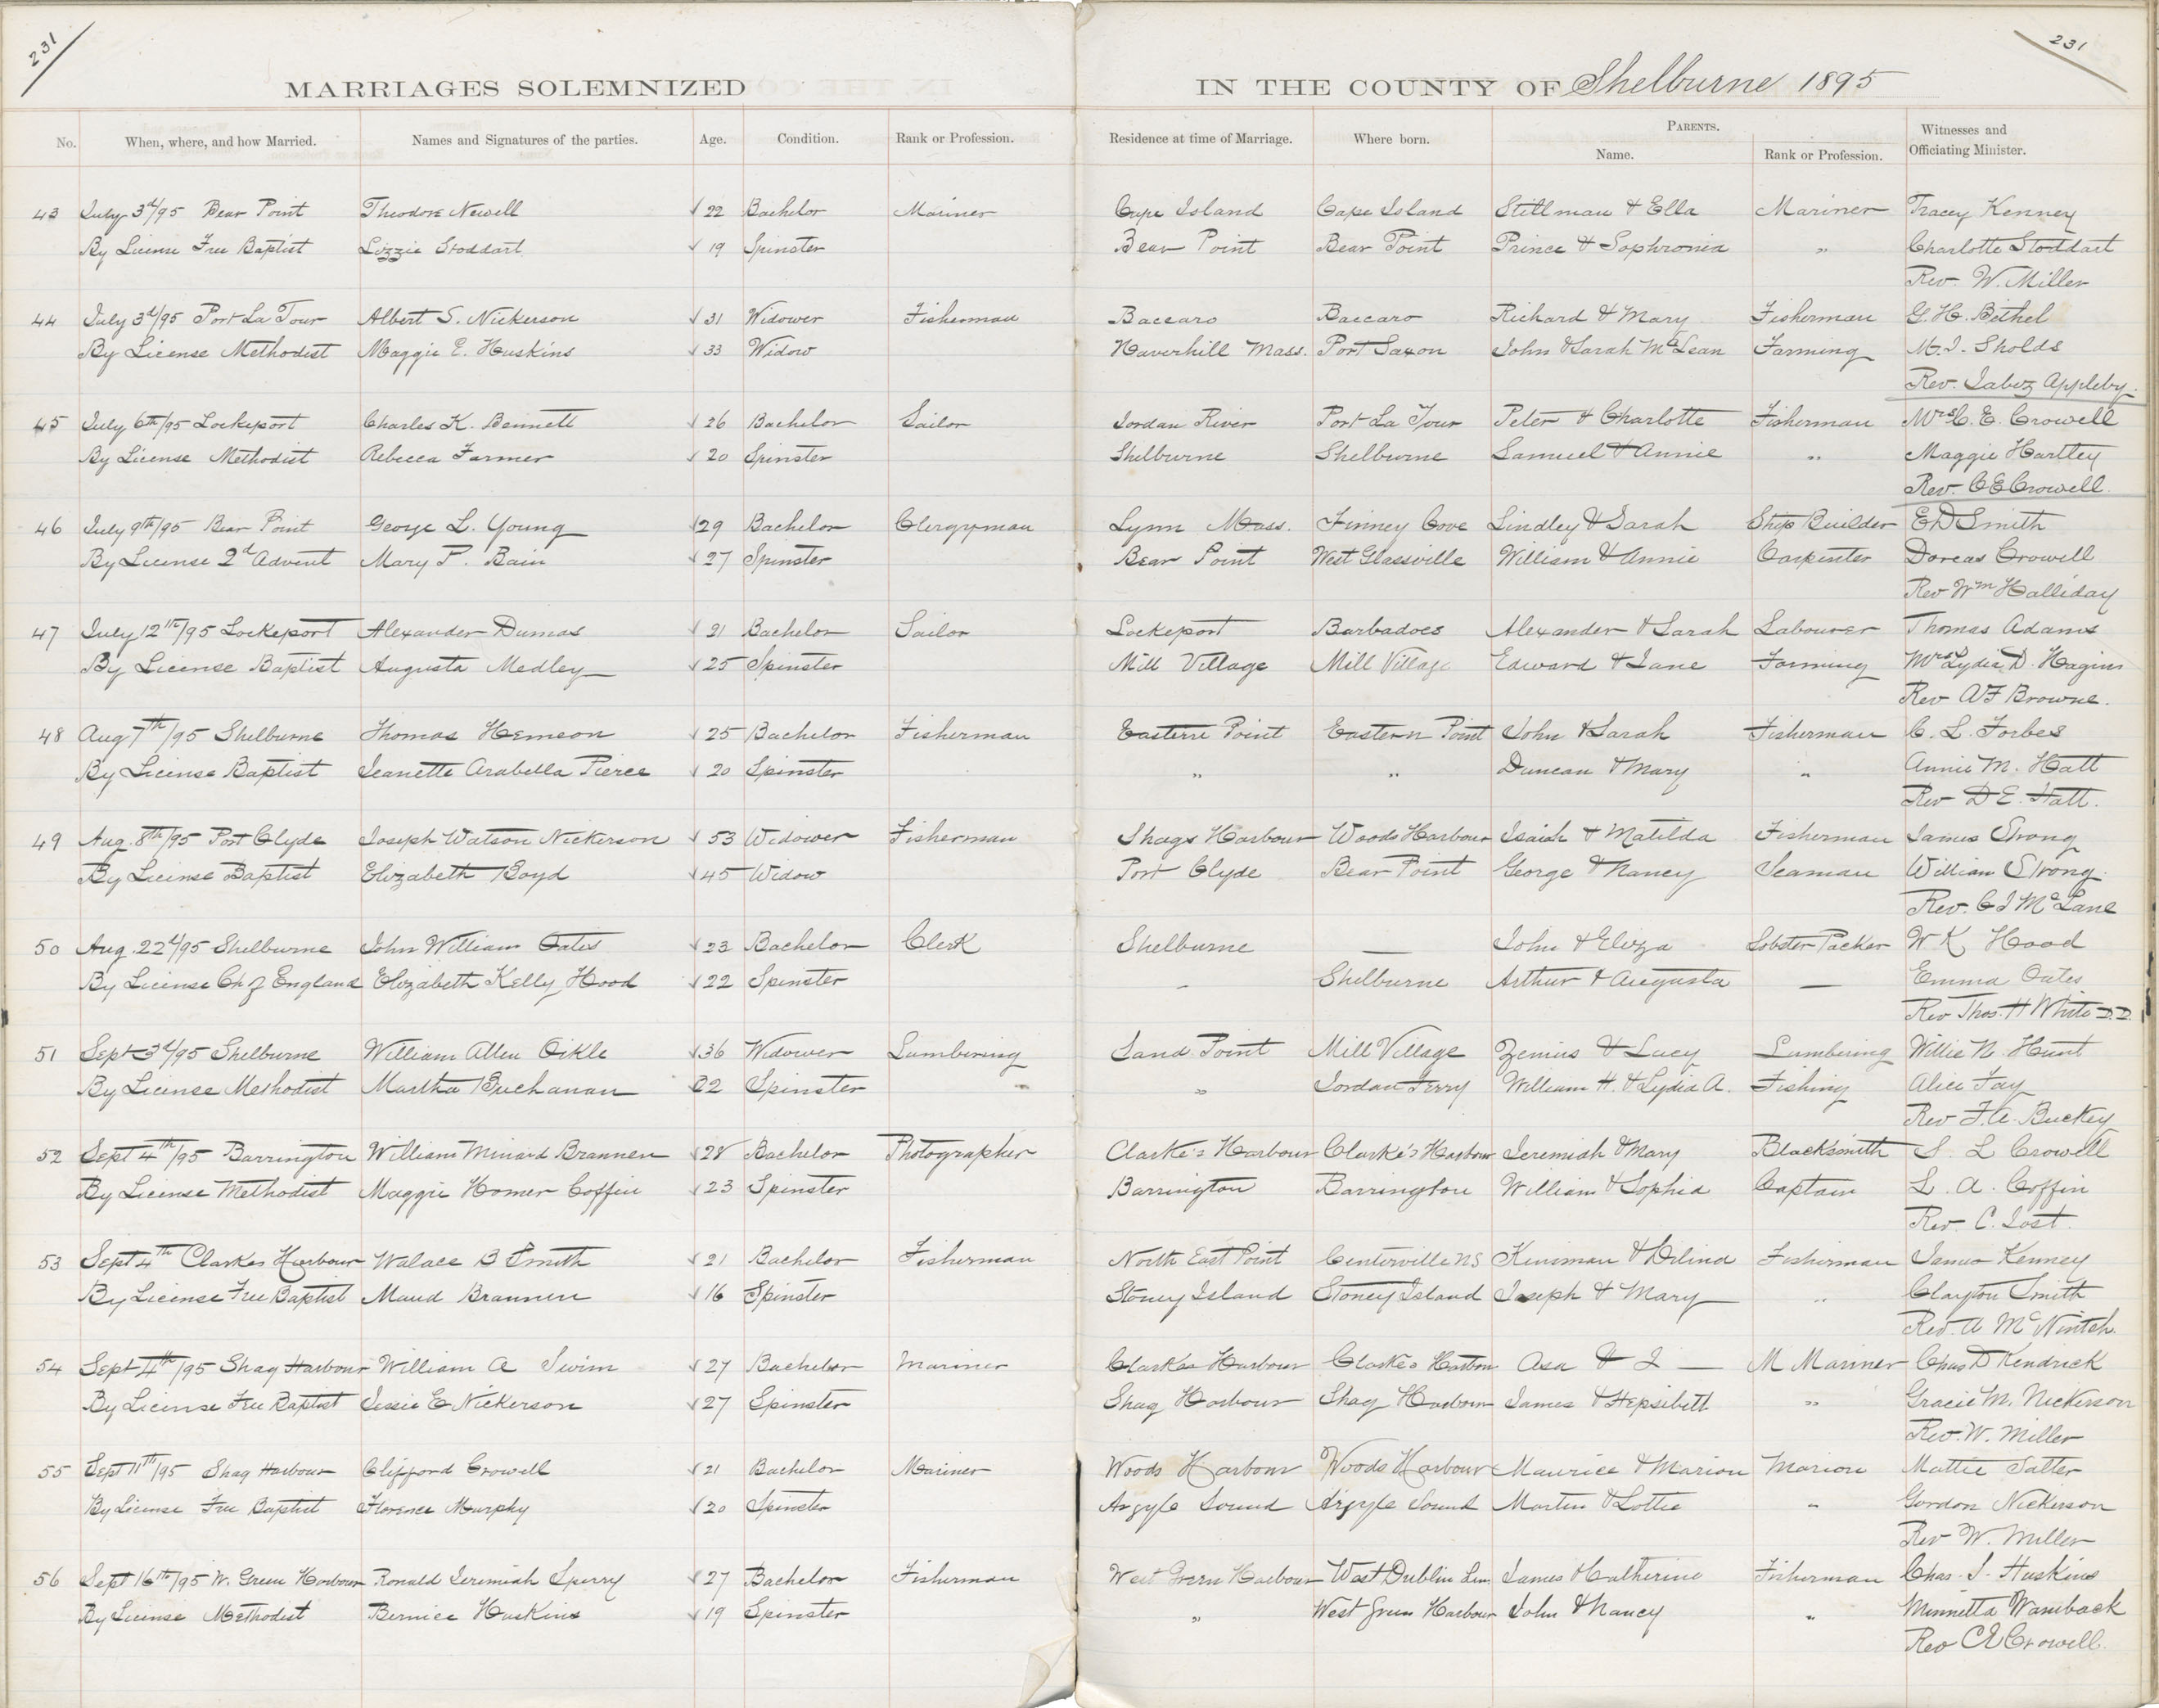 231
231
MARRIAGES SOLEMNIZED IN THE COUNTY OF Shelburne 1895
No. When, where, and how Married. Names and Signatures of the parties. Age. Condition. Rank or Profession. Residence at time of Marriage. Where born. PARENTS. Name. Rank or Profession. Witnesses and Officiating Minister.
43 July 3d/95 Bear Point Theodore Newell √ 22 Bachelor Mariner Cape Island Cape Island Stillman & Ella Mariner Tracey Kenney
By License Free Baptist Lizzie Stoddart √ 19 Spinster Bear Point Bear Point Prince & Sophronia " Charlotte Stoddart
Rev. W. Miller
44 July 3d/95 Port La Tour Albert S. Nickerson √ 31 Widower Fisherman Baccaro Baccaro Richard & Mary Fisherman G. H. Bethel
By License Methodist Maggie E. Huskins √ 33 Widow Haverhill Mass. Port Saxon John & Sarah McLean Farming M. I. Sholds
Rev. Jabez Appleby
45 July 6th/95 Lockeport Charles K. Bennett √ 26 Bachelor Sailor Jordan River Port La Tour Peter & Charlotte Fisherman Mrs C. E. Crowell
By License Methodist Rebecca Farmer √ 20 Spinster Shelburne Shelburne Samuel & Annie " Maggie Hartley
Rev. C E Crowell
46 July 9th/95 Bear Point George L. Young √ 29 Bachelor Clergyman Lynn Mass. Finney Cove Lindley & Sarah Ship Builder E D Smith
By License 2d Advent Mary P. Bain √ 27 Spinster Bear Point West Glassville William & Annie Carpenter Dorcas Crowell
Rev Wm Halliday
47 July 12th/95 Lockeport Alexander Dumas √ 21 Bachelor Sailor Lockeport Barbadoes Alexander & Sarah Labourer Thomas Adams
By License Baptist Augusta Medley √ 25 Spinster Mill Village Mill Village Edward & Jane Farming Mrs Lydia D. Hagins
Rev A F Browne.
48 Aug 7th/95 Shelburne Thomas Hemeon √ 25 Bachelor Fisherman Eastern Point Eastern Point John & Sarah Fisherman C. L. Forbes
By License Baptist Jeanette Arabella Pierce √ 20 Spinster " " Duncan & Mary " Annie M. Hatt
Rev D E. Hatt.
49 Aug. 8th/95 Port Clyde Joseph Watson Nickerson √ 53 Widower Fisherman Shags Harbour Woods Harbour Isaiah & Matilda Fisherman James Strong
By License Baptist Elizabeth Boyd √ 45 Widow Port Clyde Bear Point George & Nancy Seaman William Strong.
Rev. C I McLane
50 Aug. 22d/95 Shelburne John William Oates √ 23 Bachelor Clerk Shelburne — John & Eliza Lobster Packer W K Hood
By License Ch of England Elizabeth Kelly Hood √ 22 Spinster - Shelburne Arthur & Augusta — Emma Oates
Rev Thos. H White D.D.
51 Sept 3d/95 Shelburne William Allen Oikle √ 36 Widower Lumbering Sand Point Mill Village Zenius & Lucy Lumbering Willis N. Hunt
By License Methodist Martha Buchanan 22 Spinster " " Jordan Ferry William H. & Lydia A. Fishing Alice Fay
Rev F. A. Buckey
52 Sept 4th/95 Barrington William Minard Brannen √ 28 Bachelor Photographer Clarke's Harbour Clarke's Harbour Jeremiah & Mary Blacksmith S. L Crowell
By License Methodist Maggie Homer Coffin √ 23 Spinster Barrington Barrington William & Sophia Captain L. A. Coffin
Rev C. Jost.
53 Sept 4th Clarkes Harbour Walace B Smith √ 21 Bachelor Fisherman North East Point Centerville NS Kinsman & Dilina Fisherman James Kenney
By License Free Baptist Maud Brannen √ 16 Spinster Stoney Island Stoney Island Joseph & Mary " Clayton Smith
Rev. A McNintch.
54 Sept 4th/95 Shag Harbour William A Swim √ 27 Bachelor Mariner Clarkes Harbour Clarkes Harbour Asa & I — M Mariner Chas D Kendrick
By License Free Baptist Jessie E Nickerson √ 27 Spinster Shag Harbour Shag Harbour James & Hepsibett " Gracie M. Nickerson
Rev. W. Miller
55 Sept 11th/95 Shag Harbour Clifford Crowell √ 21 Bachelor Mariner Woods Harbour Woods Harbour Maurice & Marion Marion Mattie Salter
By License Free Baptist Florence Murphy √ 20 Spinster Argyle Sound Argyle Sound Martin & Lottie " Gordon Nickerson
Rev W. Miller
56 Sept 16th/95 W. Green Harbour Ronald Jeremiah Sperry √ 27 Bachelor Fisherman West Green Harbour West Dublin Lun. James & Catherine Fisherman Chas. S. Huskins
By License Methodist Bernice Huskins √ 19 Spinster " West Green Harbour John & Nancy " Minnetta Wamback
Rev C E Crowell.